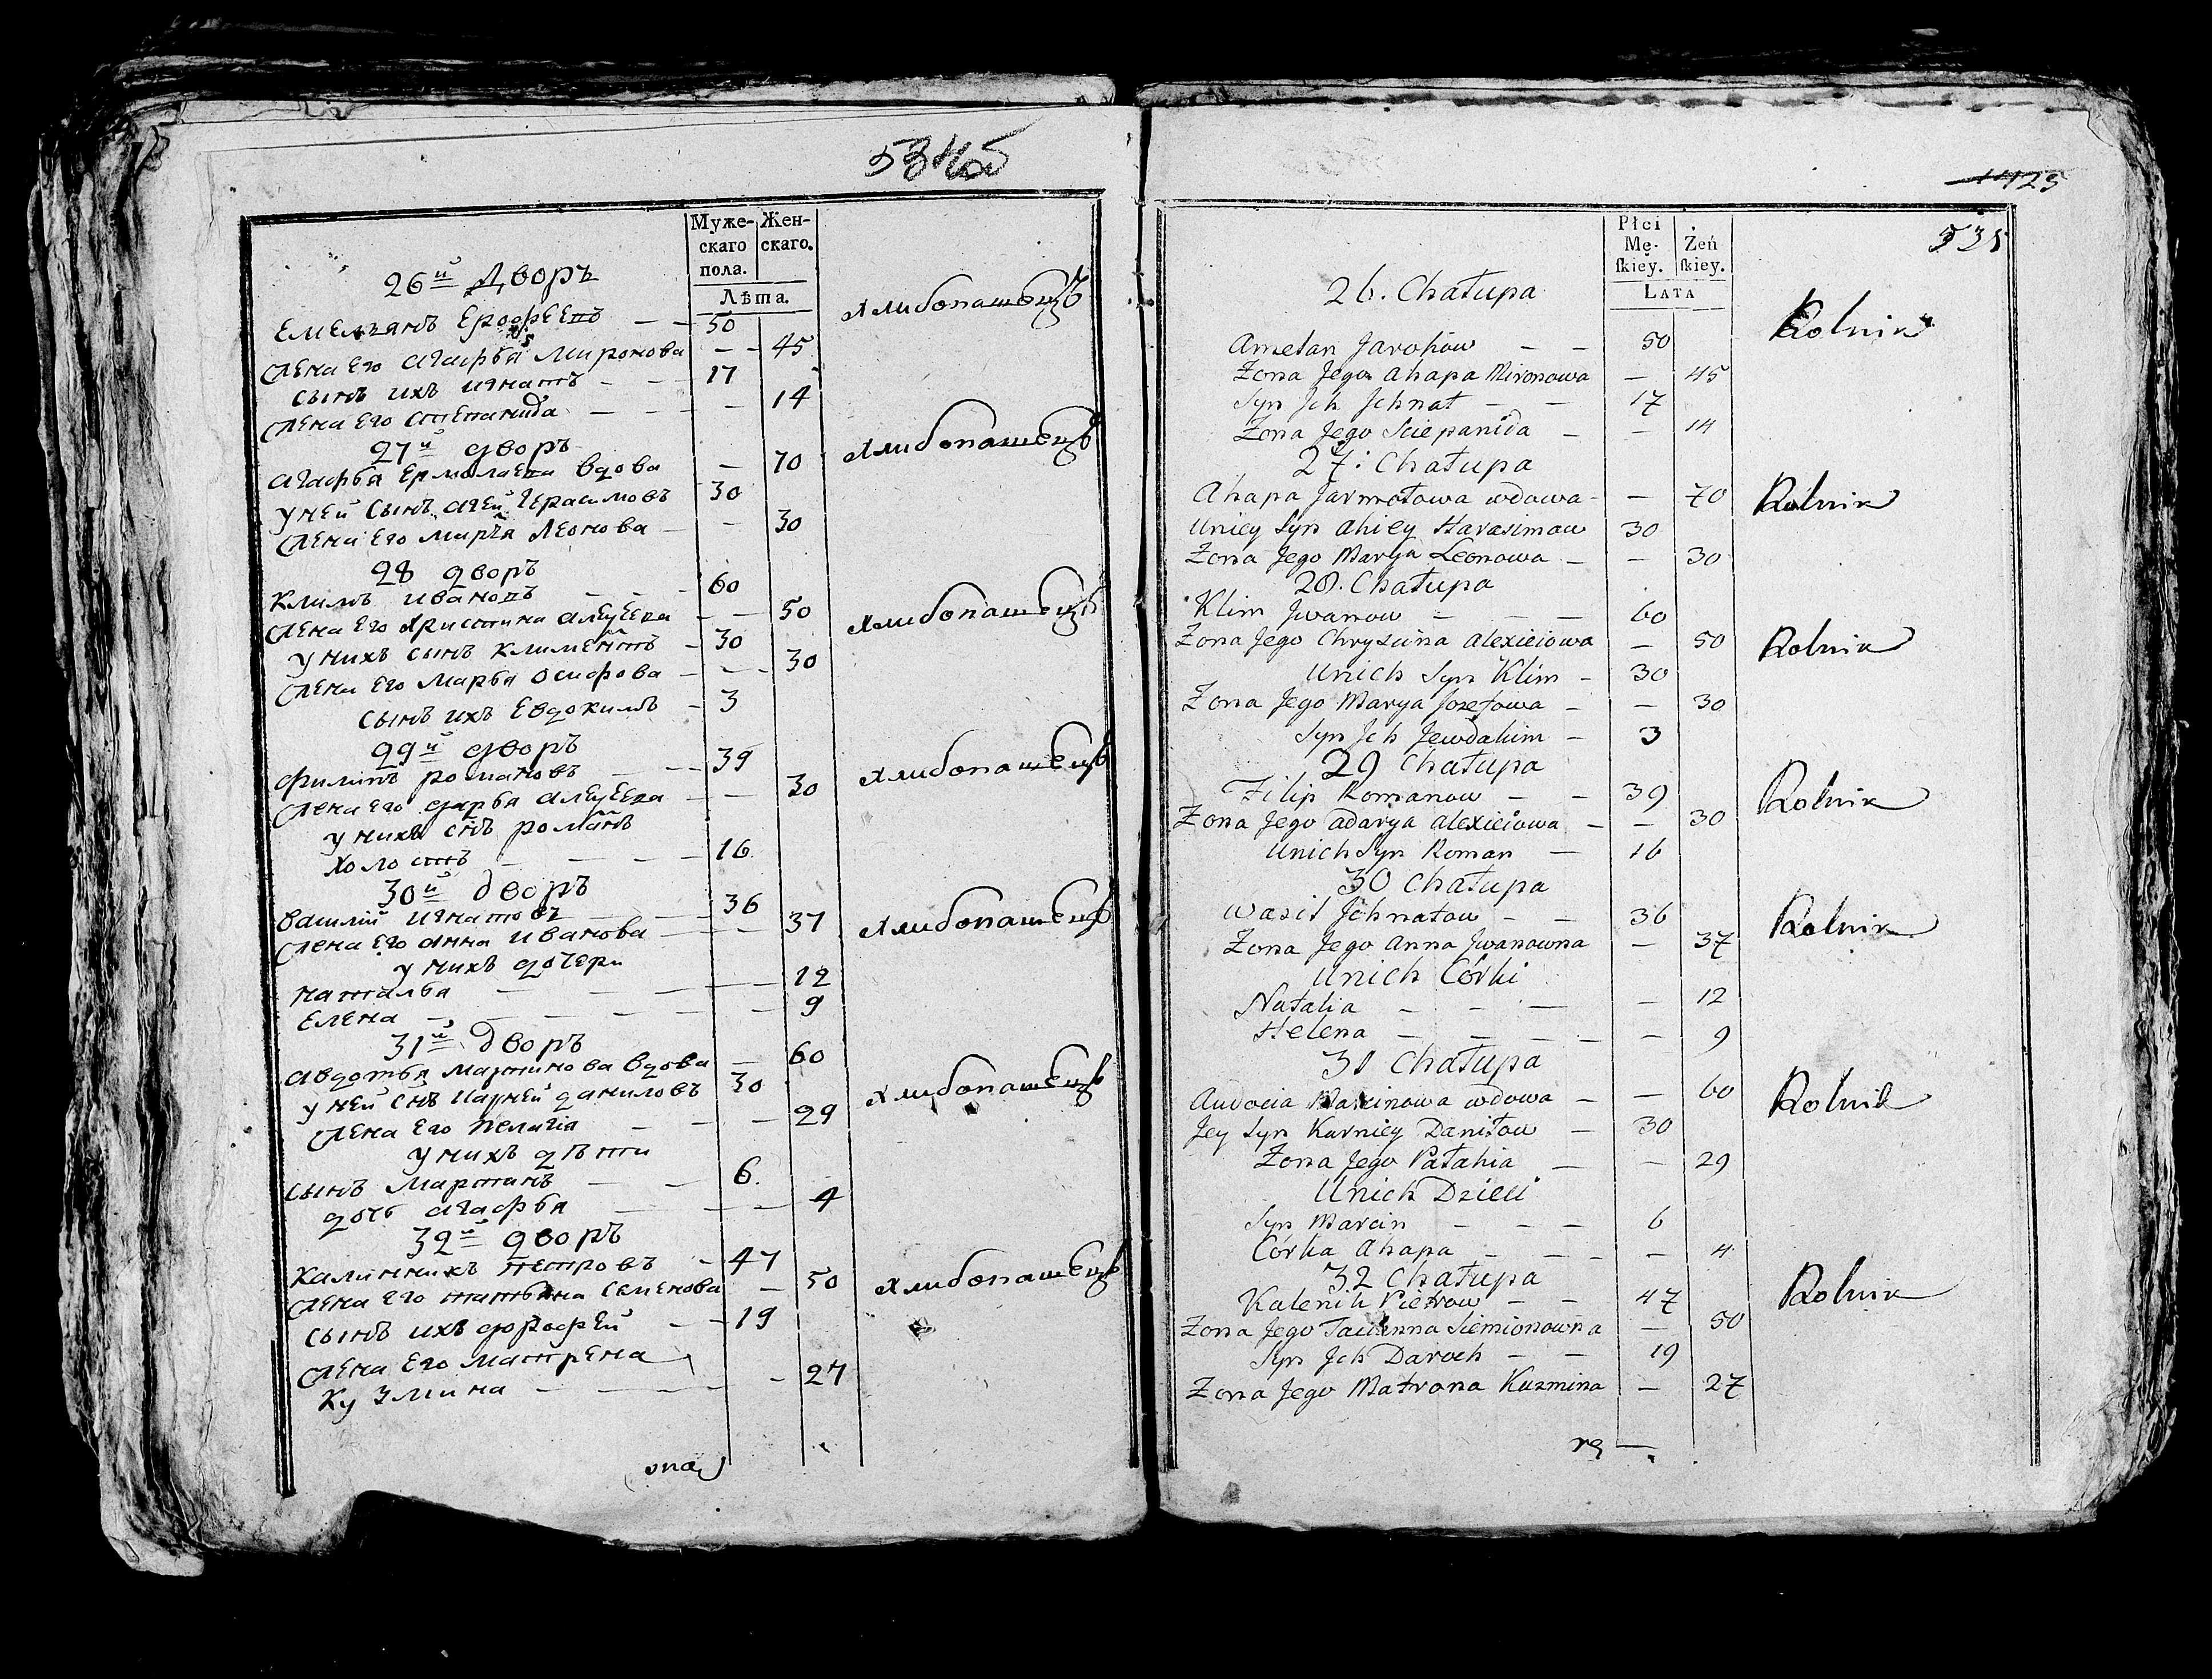 534 об
Муже-
скаго
пола.
Жен-
скаго.
Лѣта.
26й Дворъ
Емельянъ Ерофеевъ — — 50 хлибопашецъ
жена его агафья Миронова — — 45
сынъ ихъ игнатъ — — 17
жена его степанида — — — — 14
27й дворъ
агафья Ермолаева вдова — 70 хлибопашецъ
у ней сынъ агей Герасимовъ 30
жена его марья Леонова — — 30
28 дворъ
Климъ Ивановъ — — — 60
жена его христина алеѯеева — — 50 хлибопашецъ
у нихъ сынъ климентъ — 30
жена его марья осифова — — — 30
сынъ ихъ Евдокимъ — 3
29й дворъ
филипъ романовъ — — 39
жена его дарья алеѯеева — — 30 хлибопашецъ
у нихъ снъ романъ
холостъ — — — — 16
30й дворъ
василій игнатовъ — — 36
жена его анна Иванова — — 37 хлибопашецъ
у нихъ дочери
наталья — — — — — 12
Елена — — — — — — 9
31й дворъ
авдотья мартинова вдова — 60
у ней снъ карней даниловъ 30 хлибопашецъ
жена его пелагія — — — 29
у нихъ дѣти
сынъ мартинъ — — 6.
дочь агафья — — — 4
32й дворъ
калинникъ петровъ — 47
жена его татьяна семенова — 50 хлибопашецъ
сынъ ихъ дорофей — — 19
жена его матрена
кузмина — — — — — 27
1425
535
Płci
Mę-
skiey.
Żeń
skiey.
LATA
26. Chałupa
Rolnik
Amelan Jarohow — — 50
Zona Jego Ahapa Mironowa — 45
Syn Jch Jchnat — — 17
Zona Jego Sciepanida — — 14
27. Chałupa
Ahapa Jarmołowa wdowa — — 70 Rolnik
Uniey Syn Ahiey Harasimow 30
Zona Jego Marya Leonowa — — 30
28. Chałupa
Klim Jwanow — — — 60
Zona Jego Chrystina Alexieiowa — 50 Rolnik
Unich Syn Klim — 30
Zona Jego Marya Jozefowa — — 30
Syn Jch Jewdakim — 3
29 Chałupa
Filip Romanow — — 39 Rolnik
Zona Jego adarya Alexieiowa — — 30
Unich Syn Roman — 16
30 Chałupa
Wasil Jchnatow — — 36 Rolnik
Zona Jego Anna Jwanowna — 37
Unich Córki
Natalia — — — — 12
Helena — — — — — 9
31 Chałupa
Audocia Marcinowa wdowa — — 60 Rolnik
Jey Syn Karniey Daniłow — 30
Zona Jego Pałahia — — 29
Unich Dzieci
Syn Marcin — — — 6
Córka Ahapa — — — — 4
32 Chałupa
Kalenik Pietrow — — 47 Rolnik
Zona Jego Tacianna Siemionowna — 50
Syn Jch Daroch — — 19
Zona Jego Matrona Kuzmina — 27